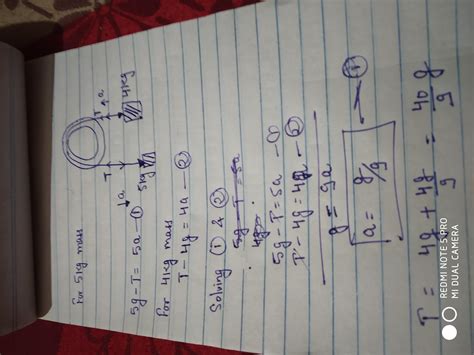 For 5kg mass
T
T
a
↓a
5kg
4kg
5g - T = 5a —①
For 4kg mass
T - 4g = 4a —②
Solving ① & ②
5g - T = 5a
5g - T = 5a —①
T - 4g = 4a —②
g = 9a
a = g/9 —①
T = 4g + 4g/9 = 40g/9
REDMI NOTE 5 PRO
MI DUAL CAMERA